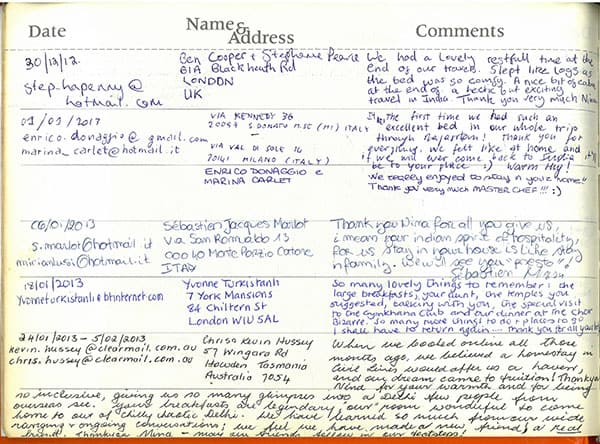 Date Name & Address Comments
30/12/12
step.hapenny@
hotmail.com
Ben Cooper + Stephanie Pearle
61A Blackheath Rd
LONDON
UK
We had a lovely restfull time at the
end of our travels. Slept like logs as
the bed was so comfy. A nice bit of calm
at the end of a hectic but exciting
travel in India. Thank you very much Nina
01/01/2017
enrico.donaggio@gmail.com
marina_carlet@hotmail.it
VIA KENNEDY 36
20097 S DONATO M.SE (MI) ITALY
VIA VAL DI SOLE 16
20141 MILANO (ITALY)
ENRICO DONAGGIO e
MARINA CARLET
It's the first time we had such an
excellent bed in our whole trip
through Rajasthan! Thank you for
everything. We felt like at home and
if we will ever come back to it'll
be to your place :) Warm Hug!
We deeply enjoyed to stay in your "home"
Thank you very much MASTER CHEF!!! :)
06/01/2013
s.marlot@hotmail.it
miricanlussi@hotmail.it
Sébastien Jacques Marlot
Via San Romualdo 13
00040 Monte Porzio Catone
ITALY
Thank you Nina for all you give us,
i mean your indian spirit of hospitality,
for us stay in your house is like stay
in family. We'll see you "presto"!
Sébastien
12/01/2013
Yvonneturkistanli@btinternet.com
Yvonne Turkistanli
7 York Mansions
84 Chiltern St
London W1U 5AL
So many lovely things to remember: the
large breakfasts, your aunt, the temples you
suggested, talking with you, the special visit
to the Gymkhana Club and our dinner at the Chor
Bizarre. So many more things to do + places to go
I shall have to return again.... Thank you for all you
24/01/2013 - 5/02/2013
kevin.hussey@clearmail.com.au
chris.hussey@clearmail.com.au
Chris & Kevin Hussey
57 Wingara Rd
Howden Tasmania
Australia 7054
When we booked online all those
months ago, we believed a homestay in
Civil Lines would offer us a haven,
and our dream came to fruition! Thankyou
Nina for your warmth and for being
so inclusive, giving us so many glimpses into a Delhi few people from
overseas see. Your breakfasts are legendary, our room wonderful to come
home to out of chilly chaotic Delhi. We have learned so much from our wide
ranging + ongoing conversations; we feel we have made a new friend, a real
friend. Thankyou Nina - may our friends follow in our footsteps!